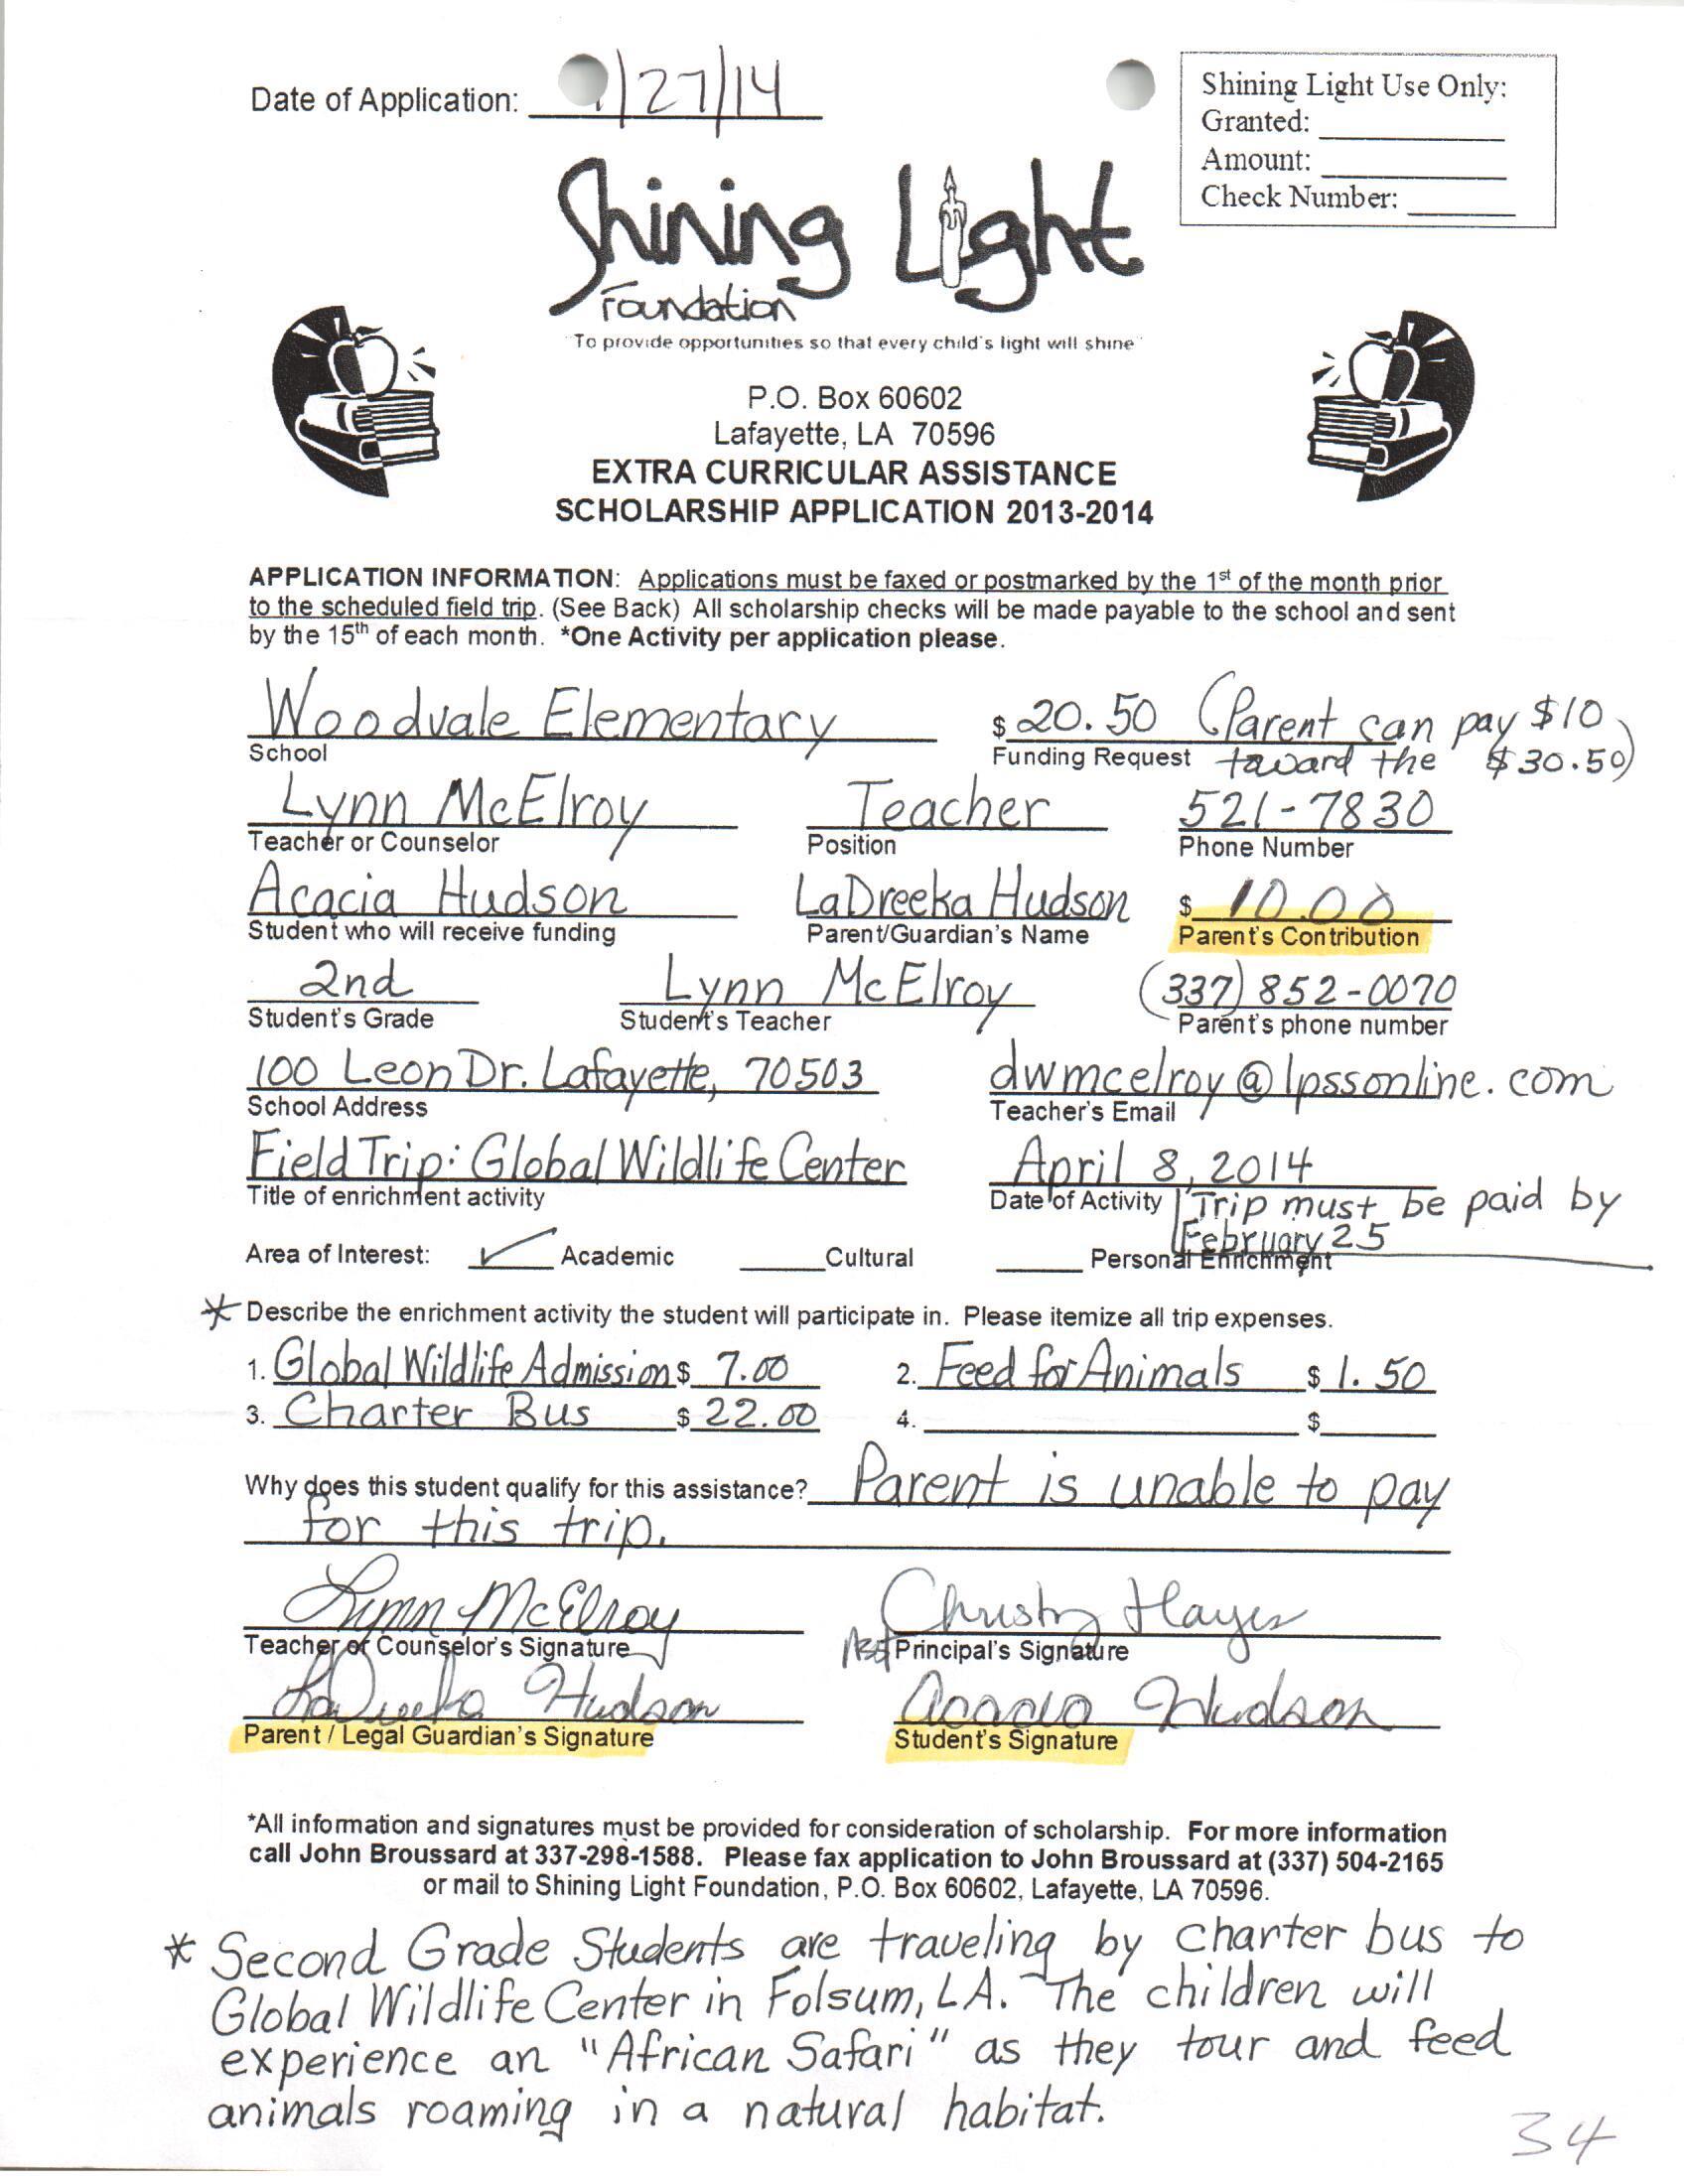 Date of Application: 1/27/14
Shining Light Use Only:
Granted:
Amount:
Check Number:
Shining Light
Foundation
"To provide opportunities so that every child's light will shine"
P.O. Box 60602
Lafayette, LA 70596
EXTRA CURRICULAR ASSISTANCE
SCHOLARSHIP APPLICATION 2013-2014
APPLICATION INFORMATION: Applications must be faxed or postmarked by the 1st of the month prior
to the scheduled field trip. (See Back) All scholarship checks will be made payable to the school and sent
by the 15th of each month. *One Activity per application please.
Woodvale Elementary $ 20.50 (Parent can pay $10
School Funding Request toward the $30.50)
Lynn McElroy Teacher 521-7830
Teacher or Counselor Position Phone Number
Acacia Hudson LaDreeka Hudson $ 10.00
Student who will receive funding Parent/Guardian's Name Parent's Contribution
2nd Lynn McElroy (337) 852-0070
Student's Grade Student's Teacher Parent's phone number
100 Leon Dr. Lafayette, 70503 dwmcelroy@lpssonline.com
School Address Teacher's Email
Field Trip: Global Wildlife Center April 8, 2014
Title of enrichment activity Date of Activity Trip must be paid by
February 25
Area of Interest: ✓ Academic Cultural Personal Enrichment
* Describe the enrichment activity the student will participate in. Please itemize all trip expenses.
1. Global Wildlife Admission $ 7.00 2. Feed for Animals $ 1.50
3. Charter Bus $ 22.00 4. $
Why does this student qualify for this assistance? Parent is unable to pay
for this trip.
Lynn McElroy Christy Hayes
Teacher or Counselor's Signature Asst Principal's Signature
LaDreeka Hudson Acacia Hudson
Parent / Legal Guardian's Signature Student's Signature
*All information and signatures must be provided for consideration of scholarship. For more information
call John Broussard at 337-298-1588. Please fax application to John Broussard at (337) 504-2165
or mail to Shining Light Foundation, P.O. Box 60602, Lafayette, LA 70596.
* Second Grade Students are traveling by charter bus to
Global Wildlife Center in Folsum, LA. The children will
experience an "African Safari" as they tour and feed
animals roaming in a natural habitat.
34